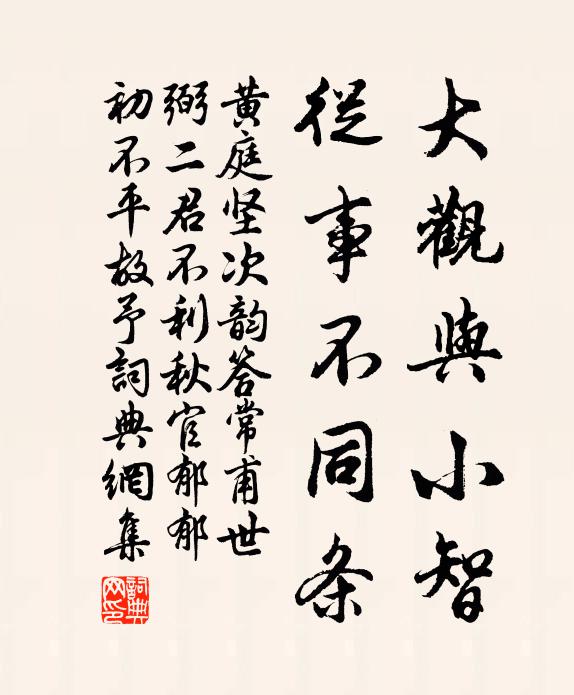 大觀與小智
從事不同条
黄庭坚次韵答常甫世
弼二君不利秋官郁郁
初不平故予詞典網集
詞典网印